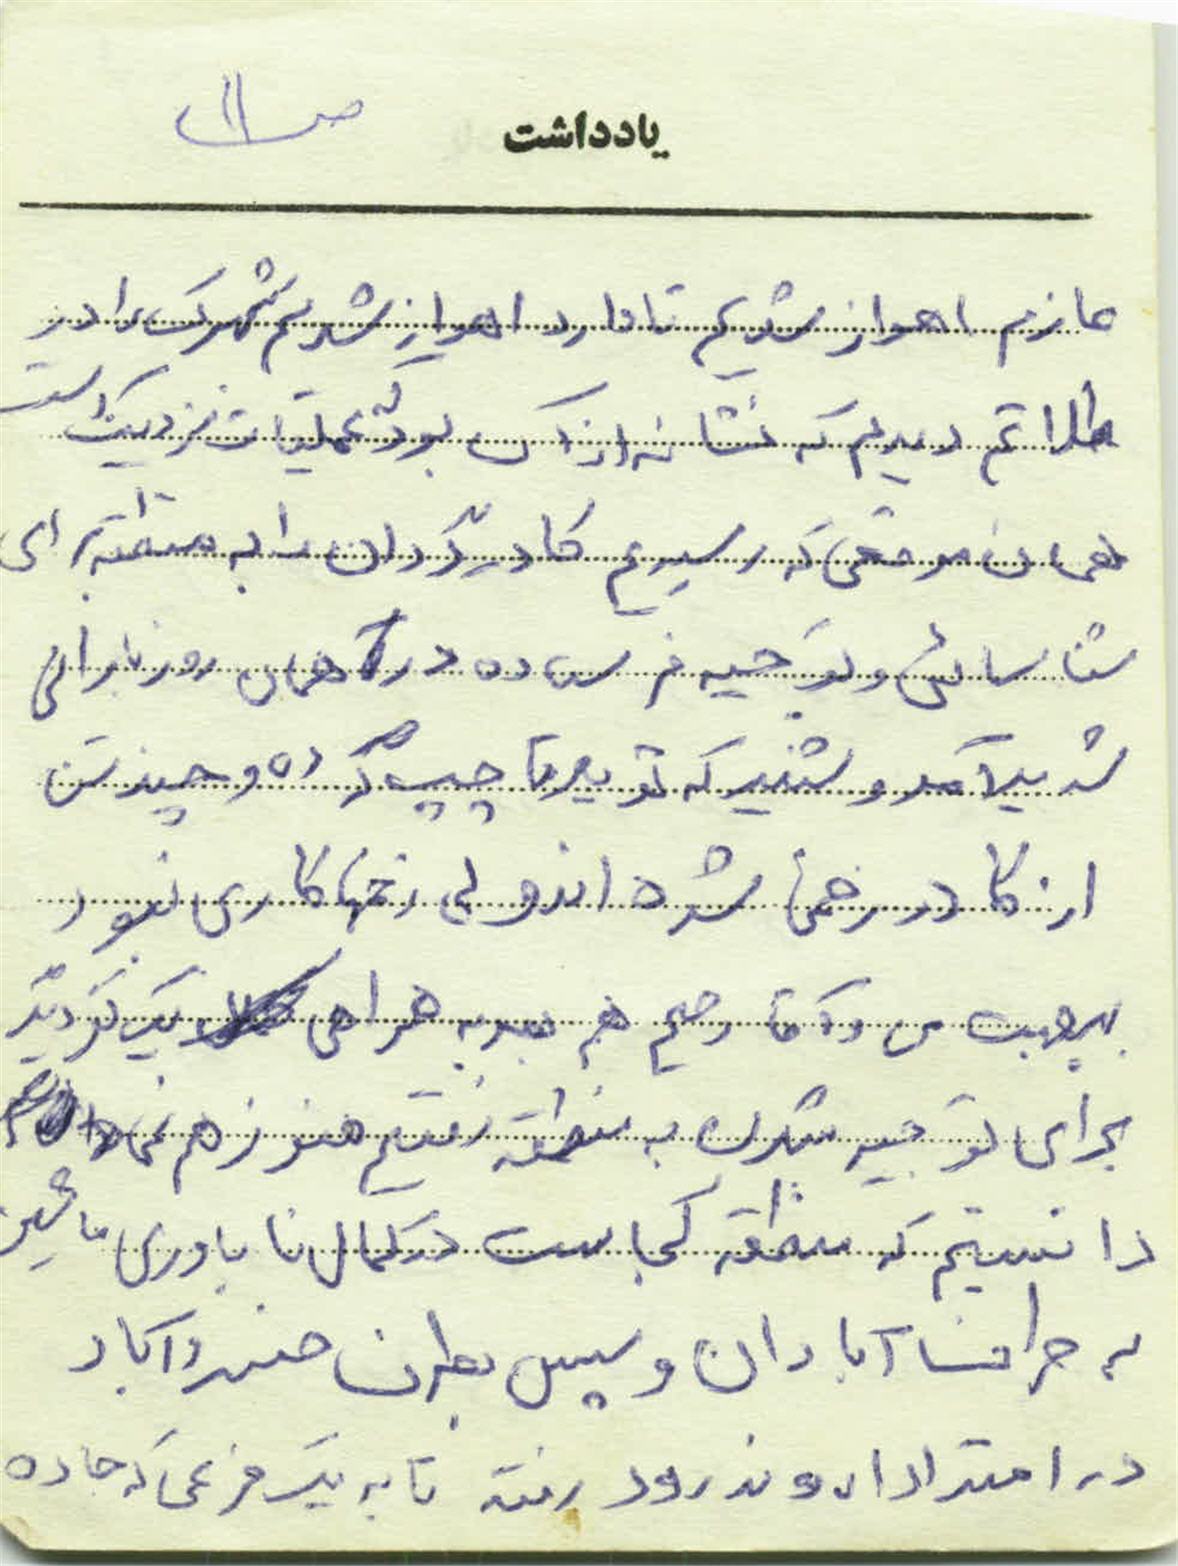 یادداشت
ص ۱۱
عازم اهواز شدیم تا وارد اهواز شدیم شهرک را در
تلاطم دیدیم که نشانه از آن بود که عملیات نزدیک است
همان موقعی که رسیدیم کادر گردان را به منطقه برای
شناسائی و توجیه فرستاده در همان روز بارانی
شدید آمد و شنید که تویوتا چپ کرده و چند تن
از کادر زخمی شده اند ولی زخمها کاری نبود
بهر جهت من و آقا رحیم هم به همراهی یک نفر دیگر
برای توجیه شدن به منطقه رفتیم هنوز هم نمی
دانستیم که منطقه کجاست در کمال ناباوری ماشین
به طرف آبادان و سپس بطرف خسروآباد
در امتداد اروندرود رفته تا به یک فرعی که جاده